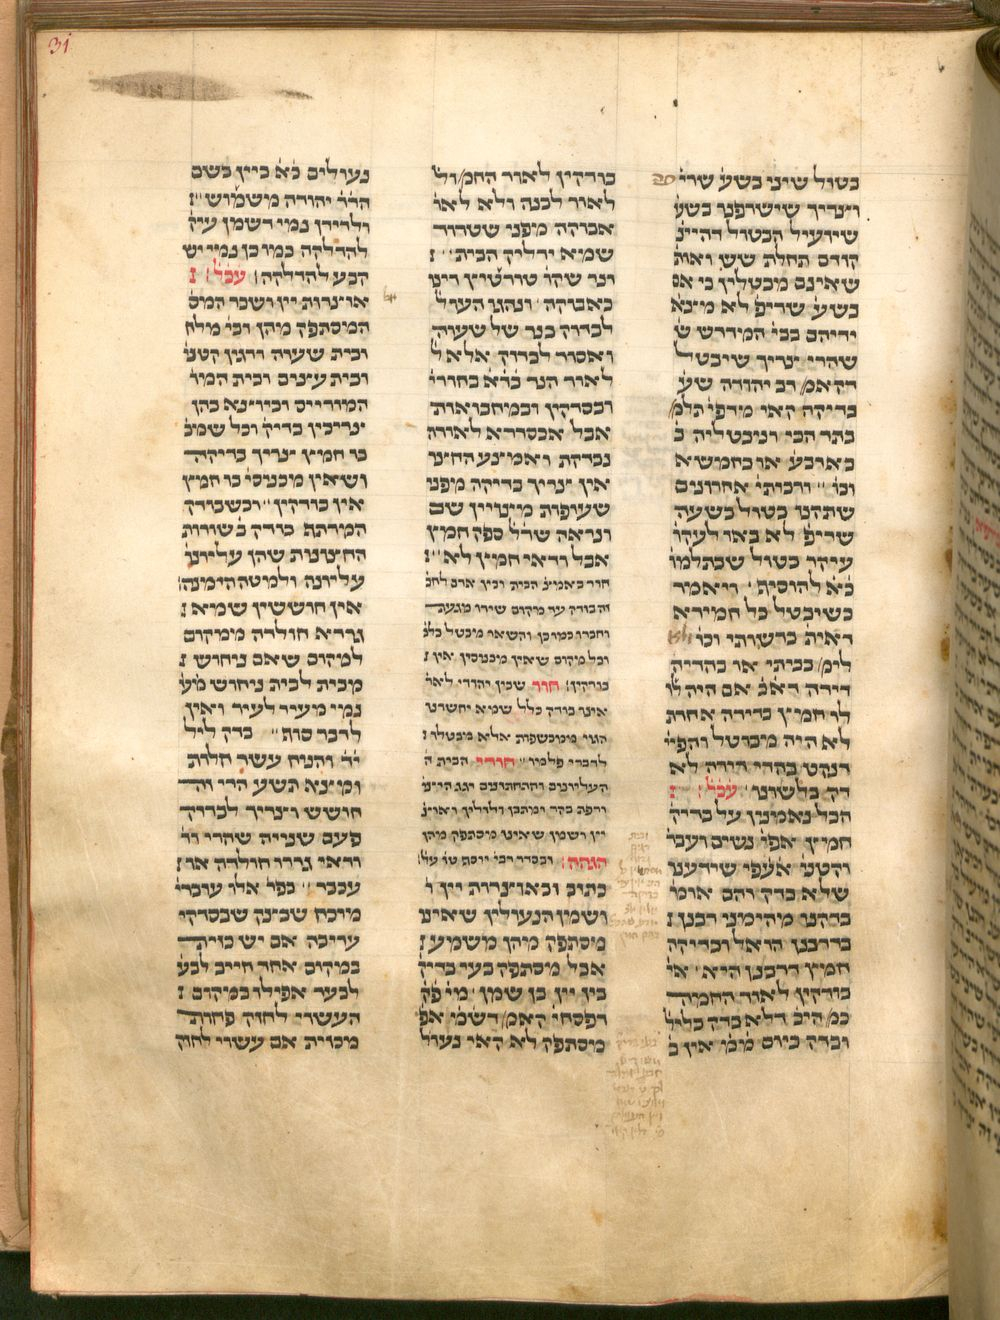 31
בטול שיני בשע שרי
וצריך שישרפנו בשע
שיועיל הבטול דהיינ
קודם תחלת שש ואות
שאינם מבטלין כי אם
בשע שריפ לא מצא
ידיהם בבי המדרש ש
שהרי צריך שיבטל
דהאמ רב יהודה שע
בדיקה האי מידפי הלמ
בתר הכי וניבטליה ב
בארבע או בחמש א
וכו ורבותי אחרונים
שתהנו בטול בשעה
שריפ לא באו לעקו
עיקר בטול שבתלמו
כא להוסיף ויאמר
כשיבטל כל חמירא
דאית ברשותי וכו
לימ בביתי או בהדיה
דירה דאב אם היה לו
לו חמיץ בדירה אחרת
לא היה מבוטל והפי
דנקט בהדי הורה לא
דק בלשונו עכל
הכל נאמנין על בדיק
חמיץ אפי נשים ועבד
והטני אעפי שידענו
שלא בדק והם אומ
בדקנו מהימני רבנן
בדרבנן הואל ובדיקה
חמיץ דרבנן היא אי
בודקין לאור החמה
כמ היכ דלא בדק בליל
ובדק ביום מימ אין ב
בודקין לאור החמ ול
לאור לבנה ולא לאו
אבוקה מיפני שטרוד
שמא ידליק הבית
ונר שקו טורטיץ דינו
כאבוקה ונהגו העול
לבדוק בנר של שעוה
ואסור לבדוק אלא ל
לאור הנר כדא בחורי
ובסדקין ובמחבואות
אבל אכסדרא לאורה
נבדקת ואמצע החצר
אין צריך בדיקה מפני
שעופות מצויין שם
ונראה שדל ספק חמץ
אבל ודאי חמץ לא
חור באמצ הבית ובין אדם לחב
זה בודק עד מקום שידו מגעת
וחברו כמו כן והשאר מבטל בלב
וכל מקום שאין מכניסין אין
בודקין חור שבין יהודי לאר
אינו בודק כלל שמא יחשדנו
הגוי במכשפות אלא מבטלו
לדברי פלמו חורי הבית ה
העליונים והתחתונים וגג היצי
ורפת בקר ומתבן ולולין ואוצ
יין ושמן שאינו מסתפק מהן
הגהה ובסדר רבי יוסף טו עלו
כתוב ובאוצרות יין ו
ושמן הנעולין שאינו
מסתפק מיהן משמע
אבל מסתפק בעי בדיק
בין יין בין שמן ומי פק
דפסחי קאמ דשמ אפ
מסתפק לא האי נעול
נעולים כא ביין בשם
הרר יהודה משמוש
ולדידן נמי דשמן עיק
להדלקה כמו כן נמי יש
קבע להדלקה עכל
אוצרות יין ושכר המס
המסתפק מיהן ובי מלח
ובית שעוה ודגין הטני
ובית עצים ובית המו
המורייס וכיוצא בהן
צריכין בדיק וכל שמכ
בו חמיץ צריך בדיקה
ושאין מכניסי בו חמץ
אין בודקין וכשבודק
המרתף בודק בשורות
החיצונות שהן עליונ
עליונה ולמיטה הימנה
אין חוששין שמא
גררא חולדה מימקום
למקום שאם ניחוש
מבית לבית ניחוש מע
נמי מעיר לעיר ואין
לדבר סוף בדק ליל
יד והניח עשר חלות
ומצא תשע הרי זה
חושש וצריך לבדוק
פעם שנייה שהרי וד
ודאי גררו חולדה או
עכבר כפל אלו עוברי
מוכח שבצק שבסדקי
עריבה אם יש כזית
במקום אחד חייב לבע
לבער אפילו במקום
העשוי לחזק פחות
מכזית אם עשוי לחזק